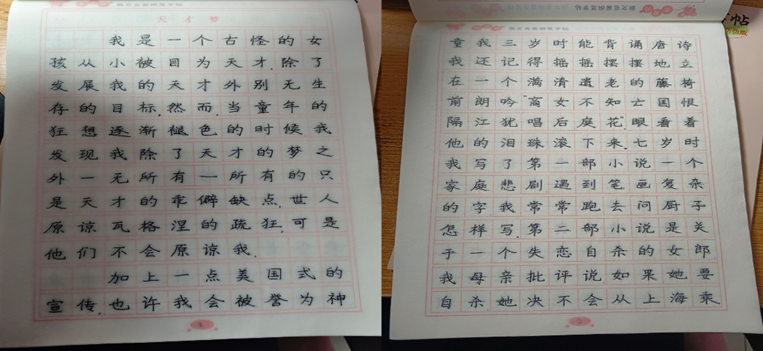 天才梦
我是一个古怪的女
孩从小被目为天才,除了
发展我的天才外别无生
存的目标.然而,当童年的
狂想逐渐褪色的时候我
发现我除了天才的梦之
外一无所有一所有的只
是天才的乖僻缺点.世人
原谅瓦格涅的疏狂,可是
他们不会原谅我.
加上一点美国式的
宣传,也许我会被誉为神
童我三岁时能背诵唐诗
我还记得摇摇摆摆地立
在一个满清遗老的藤椅
前朗吟"商女不知亡国恨
隔江犹唱后庭花",眼看着
他的泪珠滚下来.七岁时
我写了第一部小说一个
家庭悲剧遇到笔画复杂
的字我常常跑去问厨子
怎样写.第二部小说是关
于一个失恋自杀的女郎.
我母亲批评说:如果她要
自杀她决不会从上海乘
帖